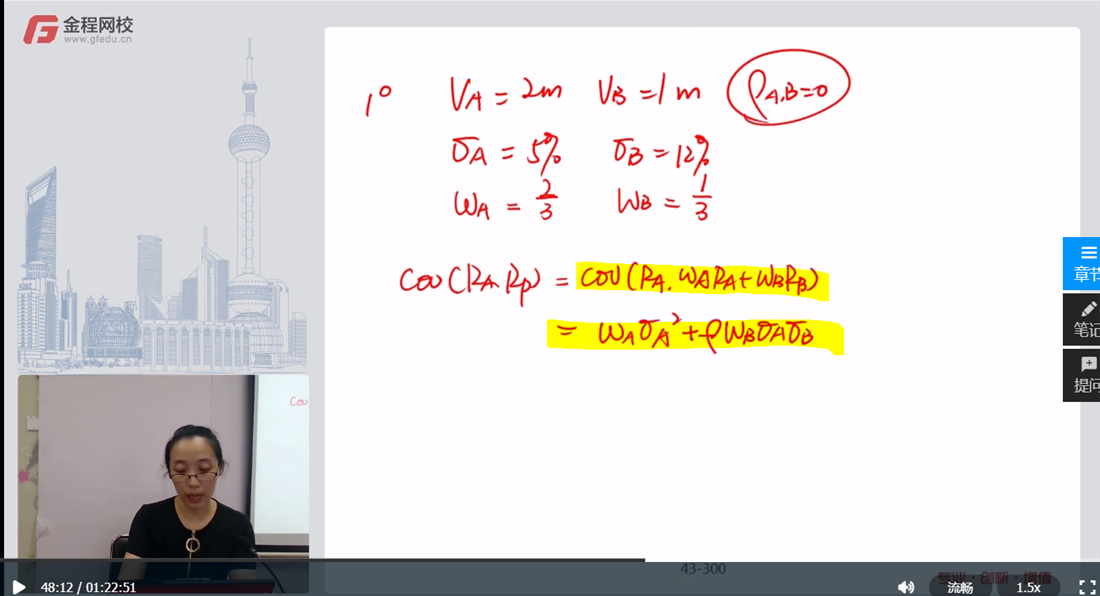 金程网校
www.gfedu.cn
1° V_A = 2m V_B = 1m ρ_A,B=0
σ_A = 5% σ_B = 12%
W_A = 2/3 W_B = 1/3
COV(R_A, R_P) = COV(R_A, W_A R_A + W_B R_B)
= W_A σ_A² + ρ W_B σ_A σ_B
Cov
章节
笔记
提问
43-300
专业·创新·增值
48:12 / 01:22:51
流畅
1.5x